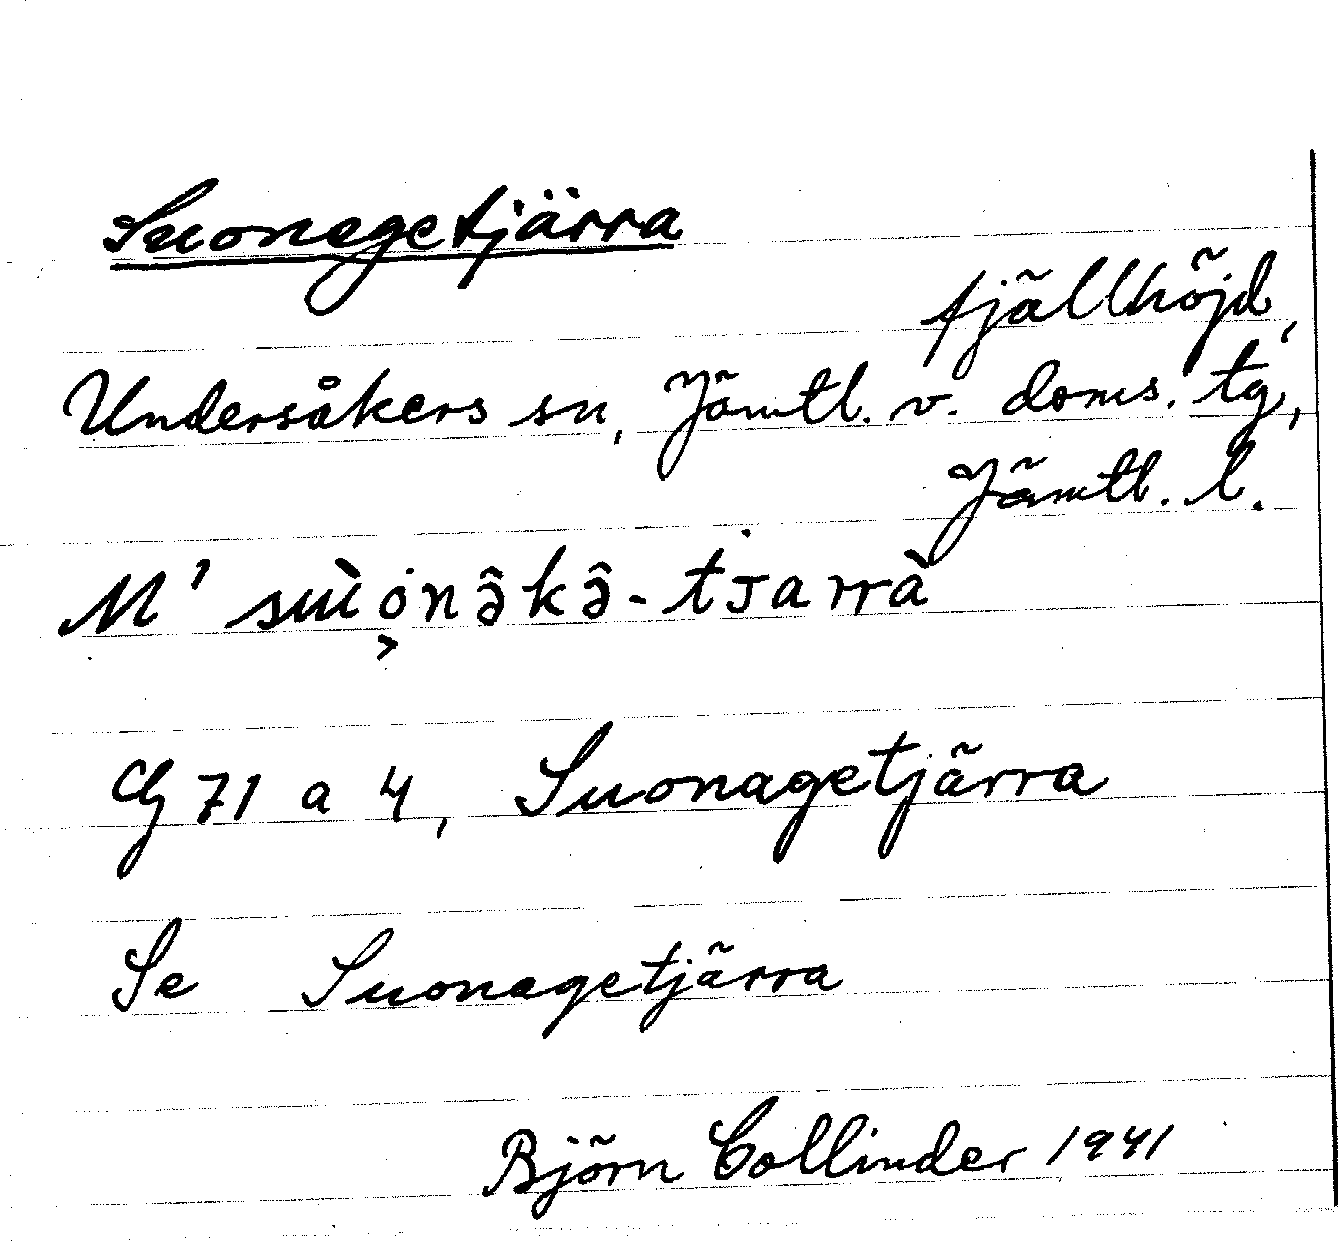 Suonegetjärra
fjällhöjd,
Undersåkers sn, Jämtl. v. doms. tg,
Jämtl. l.
M'
G 71 a 4, Suonagetjärra
Se Suonegetjärra
Björn Collinder 1941